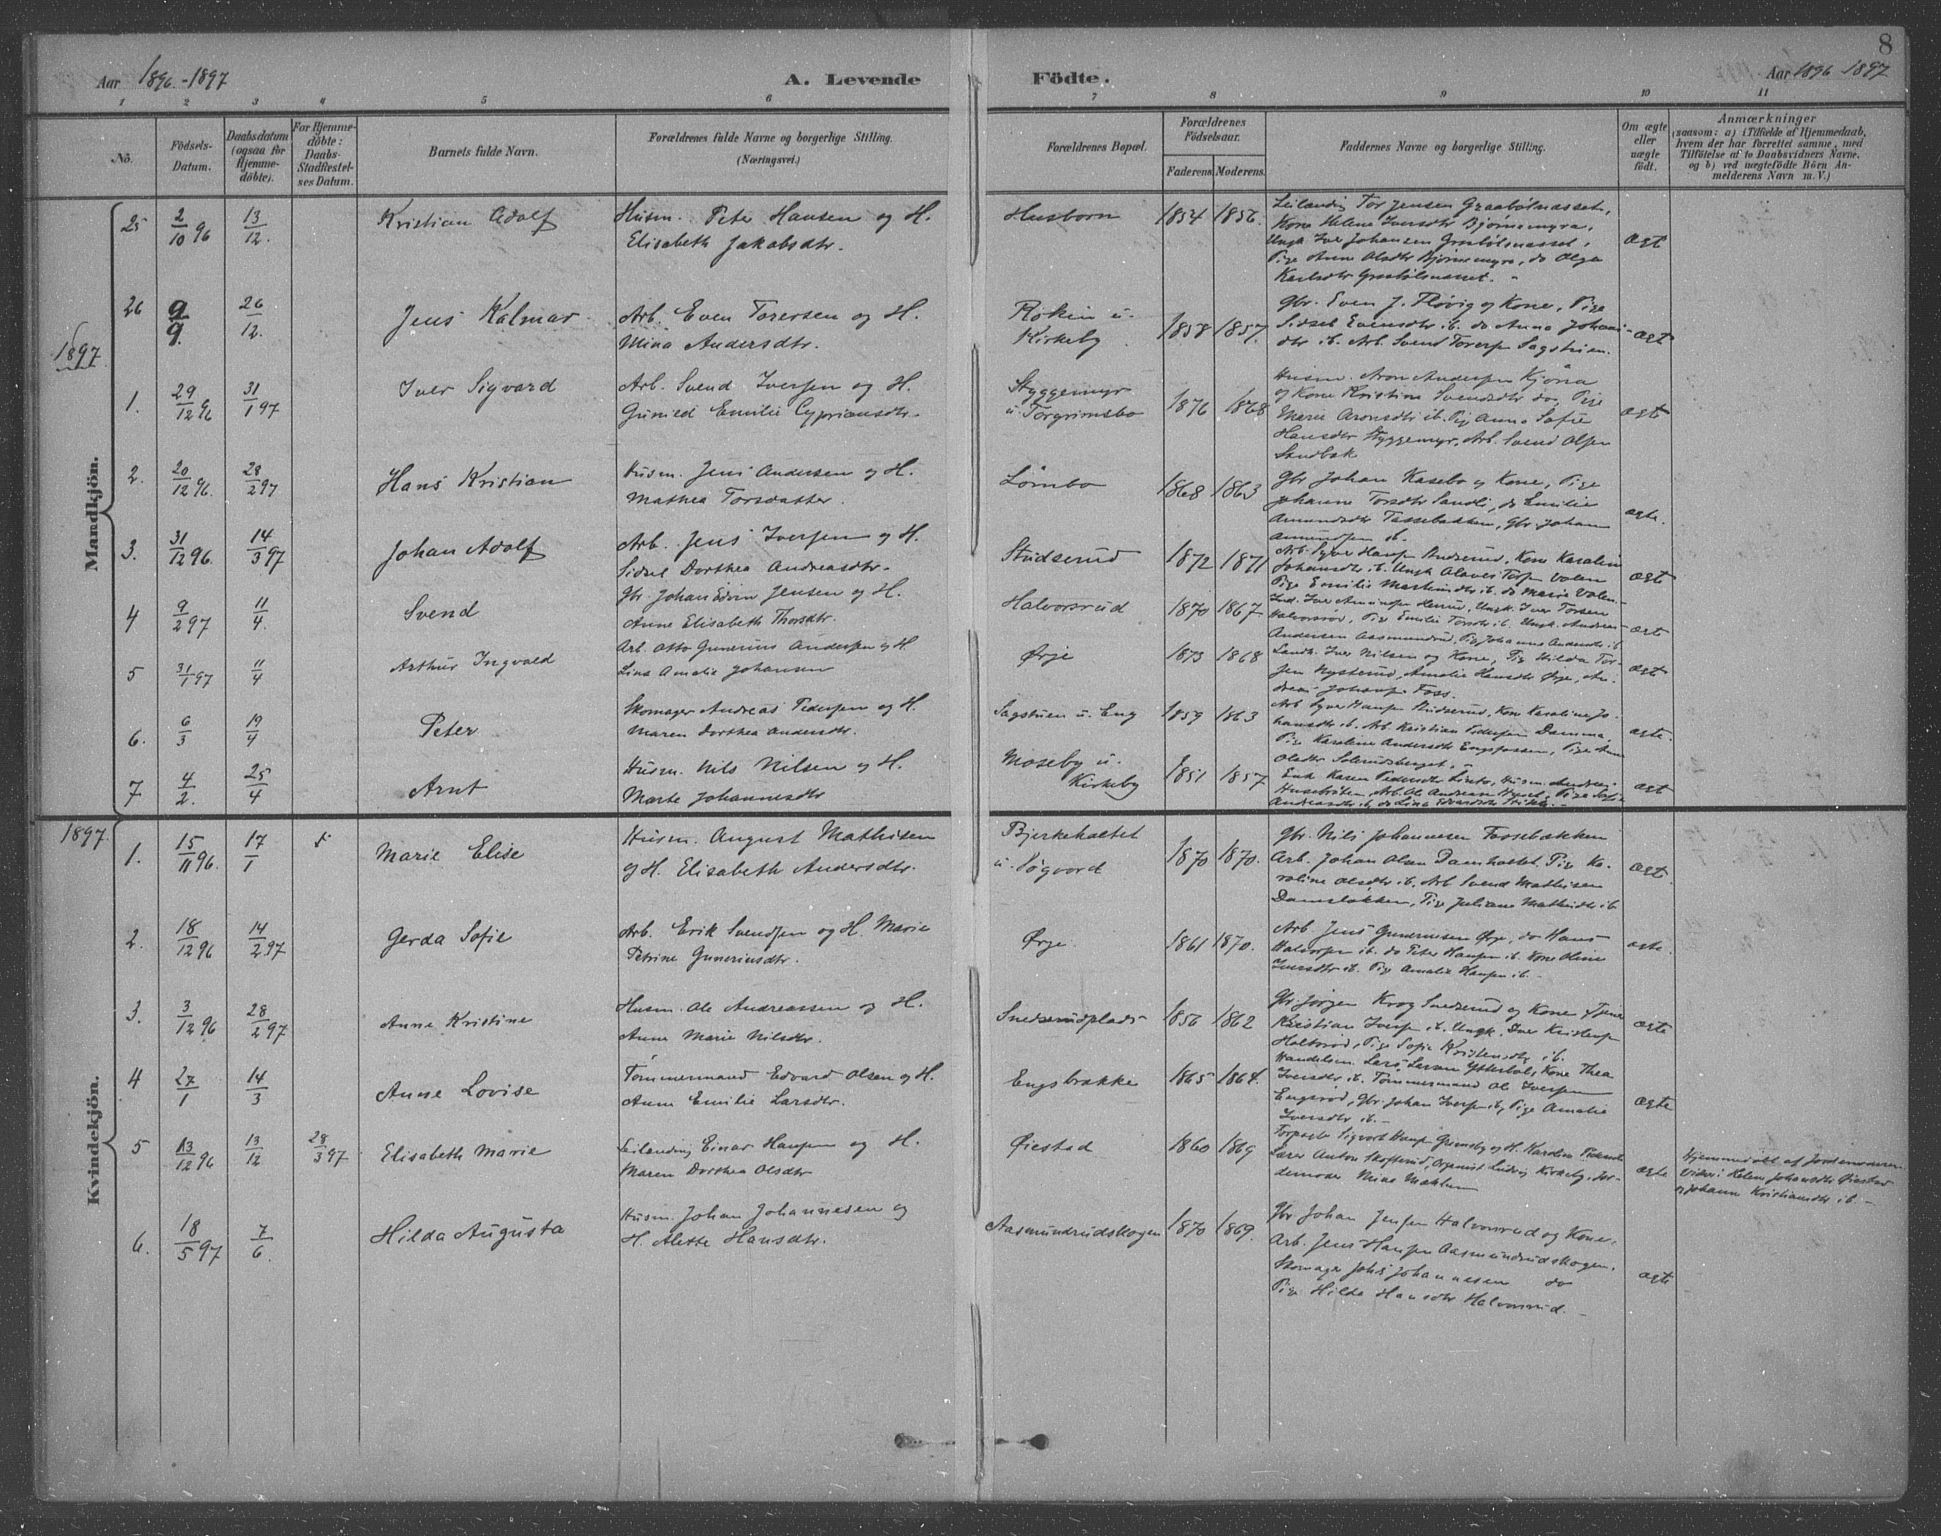 8
Aar 1896-1897
A. Levende Födte.
Aar 1896 1897
1 2 3 4 5 6 7 8 9 10 11
No.
Födsels-Datum.
Daabsdatum (ogsaa for Hjemme-döbte).
For Hjemme-döbte: Daabs-Stadfæstel-ses Datum.
Barnets fulde Navn.
Forældrenes fulde Navne og borgerlige Stilling. (Næringsvei.)
Forældrenes Bopæl.
Forældrenes Födselsaar.
Faderens Moderens.
Faddernes Navne og borgerlige Stilling.
Om ægte eller uægte födt.
Anmærkninger
(saasom: a) i Tilfælde af Hjemmedaab, hvem der har forrettet samme, med Tilföielse af to Daabsvidners Navne, og b) ved uægtefödte Börn An-melderens Navn m. V.)
Mandkjön.
25 2/10 96 13/12. Kristian Adolf
Husm. Peter Hansen og H.
Elisabeth Jakobsdtr.
Husborn 1854 1856.
Leilænding Tor Jensen Graabølnasset,
Kone Helene Iversdtr Bjørnemyra,
Ungk Iver Johansen
Pige Anne Olsdtr Bjørnemyra, do Olga
Karlsdtr
ægt
26 9/9. 26/12. Jens Kalmar
Arb. Even Torersen og H.
Mina Andersdtr.
Røken u.
Kirkeby 1858 1857.
Gbr. Even J. Fløvig og Kone, Pige
Sidsel Evensdtr ib. do Anna Johans-
dtr ib. Arb. Svend Toresp Sagstuen.
ægt
1897
1. 29/12 96 31/1 97 Iver Sigvard
Arb. Svend Iversen og H.
Gunild Emilie Cypriansdtr.
Styggemyr
u. Torgrimsbo 1876 1868
Husm. Aron Andersen Kjöna
og Kone Kristine Svendsdtr do, Pige
Marie Aronsdtr ib. Pig Anna Sofie
Hansdtr Styggemyr, Arb. Svend Olsen
Sandbæk
ægte
2. 20/12 96. 28/2 97 Hans Kristian
Husm. Jens Andersen og H.
Mathea Torsdatter.
Lömbo 1868 1863
Gbr Johan Kasebo og Kone, Pige
Johanne Torsdtr Sandli, do Emilie
Amundsdtr Tassebakken, Gbr. Johan
Amundsen ib.
ægte.
3. 31/12 96. 14/3 97 Johan Adolf
Arb. Jens Iversen og H.
Sidsel Dorthea Andreasdtr.
Studserud 1872 1871
Arb. Syver Hansen Studserud, Kone Karoline
Johansdtr ib. Ungk Olaves Torsen Volen
Pige Emilie Martinsdtr ib. do Marie Volen.
ægt
4 9/2 97 11/4. Svend
Gbr. Johan Edvin Jensen og H.
Anne Elisabeth Thorsdtr.
Halvorsrud 1870 1867.
Ind. Iver Amundsen Herrud, Ungk. Iver Torsen
Halvorsrød, Pige Emilie Torsdtr ib. Ungk. Andreas
Andersen Aasmundrud, Pig Johanne Andersdtr ib
ægt
5 31/1 97 11/4 Arthur Ingvald
Arb. Otto Gunerius Andersen og H
Lina Amalie Johansen
Ørje 1873 1868
Landh. Iver Nilsen og Kone, Pig Hilda Tor-
sen Nysterud, Amalie Hansdtr Ørje, An-
dreas Johansen Foss.
ægt
6. 6/3 19/4 Peter
Skomager Andreas Pedersen og H.
Maren Dorthea Andersdtr.
Sagstuen u. Eng 1859 1863
Arb Syver Hansen Studserud, Kone Karoline Jo-
hansdtr ib. Arb Kristian Pedersen Damma,
Pige Karoline Andersdtr Engsfossen, Pige Anna
Olsdtr Solerudsberget.
ægte.
7 4/2. 25/4 Arnt
Husm. Nils Nilsen og H.
Marte Johannesdtr
Moseby u.
Kirkeby 1851 1857
Enk Karen Pedersdtr
ægt
Kvindekjön.
1897.
1. 15/11 96. 17/1 Marie Elise
Husm. August Mathisen
og H. Elisabeth Andersdtr.
Bjerkeholtet
u. Søgvord 1870 1870.
Gbr. Nils Johannesen Tassebakken
Arb. Johan Olsen Damholtet, Pige Ka-
roline Olsdtr ib. Arb Svend Mathisen
Damsløkken, Pige Juliane Mathisdtr ib
ægt.
2. 18/12 96 14/2 97 Gerda Sofie
Arb. Erik Svendsen og H. Marie
Petrine Gunneriusdtr.
Ørje. 1861 1870.
Arb Jens Gunerusen Ørje, do Hans
Halvorsen ib. do Peter Hansen ib. Kone Oline
Iversdtr ib. Pige Amalie Hansen ib.
ægte.
3. 3/12 96 28/2 97 Anne Kristine
Husm. Ole Andreassen og H.
Anne Marie Nilsdtr.
Snedserudplads 1856 1862
Gbr. Jørgen Krog Snedserud og Kone, Tjener
Kristian Iversen ib. Ungk. Iver Kristensen
Holtsrød, Pige Sofie Kristensdtr ib.
ægte
4 27/1 14/3 Anne Lovise
Tömmermand Edvard Olsen og H.
Anne Emilie Larsdtr.
Engsbrække 1865 1864.
Handelsm. Lars Larsen Ytterbøl, Kone Thea
Iversdtr ib. Tömmermand Ole Iversen
Engsrød, Gbr. Johan Iversen ib, Pige Amalie
Iversdtr ib.
ægte
5 13/12 96 13/12 28/3 97 Elisabeth Marie
Leilænding Einar Hansen og H.
Maren Dorthea Olsdtr
Øiestad 1860 1869
Sigvart Hansen Grimsby og H. Karoline
Lærer Anton Skofterud, Organist Ludvig Kirkeby, Jor-
demoder Mina Mækken
ægte
Hjemmedøbt af Jordemoderen
Vidner: Helene Johansdtr Øiestad
og Johanne Kristiansdtr ib.
6. 18/5 97 7/6. Hilda Augusta
Husm. Johan Johannesen og
H. Alette Hansdtr.
Aasmundrudskogen 1870 1869.
Gbr Johan Jensen Halvorsrud og Kone,
Arb. Jens Hansen Aasmundrudskogen.
Skomager Johs Johannesen do
Pige Hilda Hansdtr Halvorsrud.
ægte